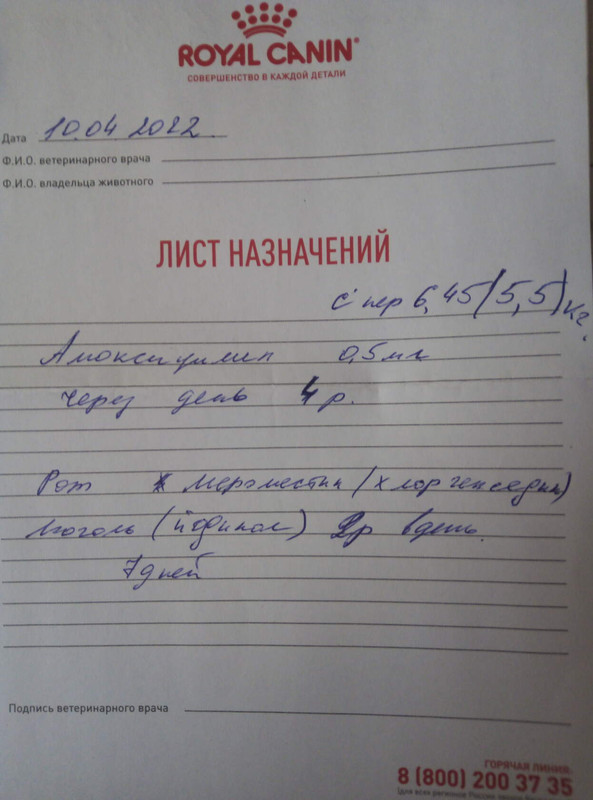 ROYAL CANIN
СОВЕРШЕНСТВО В КАЖДОЙ ДЕТАЛИ
Дата 10.04 2022
Ф.И.О. ветеринарного врача
Ф.И.О. владельца животного
ЛИСТ НАЗНАЧЕНИЙ
6,45 (5,5) кг.
Амоксициллин 0,5 мл
через день 4 р.
Рот Мирамистин (хлоргекседин)
Люголь (йодинол) 2р в день.
7 дней
Подпись ветеринарного врача
ГОРЯЧАЯ ЛИНИЯ:
8 (800) 200 37 35
(для всех регионов России